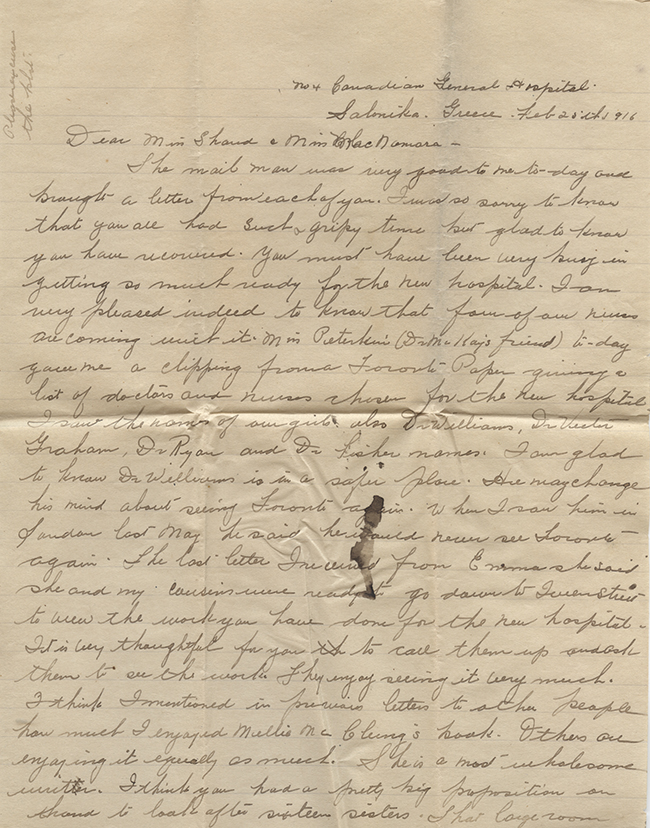 Please excuse
the blot.
No 4 Canadian General Hospital.
Salonika. Greece. Feb 25th 1916
Dear Miss Shaud & Miss MacNamara –
The mail man was very good to me to-day and
brought a letter from each of you. I was so sorry to know
that you all had such gripy time but glad to know
you have recovered. You must have been very busy in
getting so much ready for the new hospital. I am
very pleased indeed to know that four of our nurses
are coming with it. Miss Peterkin (Dr McKay's friend) to-day
gave me a clipping from a Toronto Paper giving a
list of doctors and nurses chosen for the new hospital
I saw the names of our girls also Dr Williams, Dr
Graham, Dr Ryan and Dr Fisher names. I am glad
to know Dr Williams is in a safer place. He may change
his mind about seeing Toronto again. When I saw him in
London last May he said he would never see Toronto
again. The last letter I received from Emma she said
she and my cousins were ready to go down to Queen Street
to view the work you have done for the new hospital.
It is very thoughtful for you to call them up and ask
them to see the work. They enjoy seeing it very much.
I think I mentioned in previous letters to other people
how much I enjoyed Nellie McClung's book. Others are
enjoying it equally as much. She is a most wholesome
writer. I think you had a pretty big proposition on
hand to look after sixteen sisters. That large room